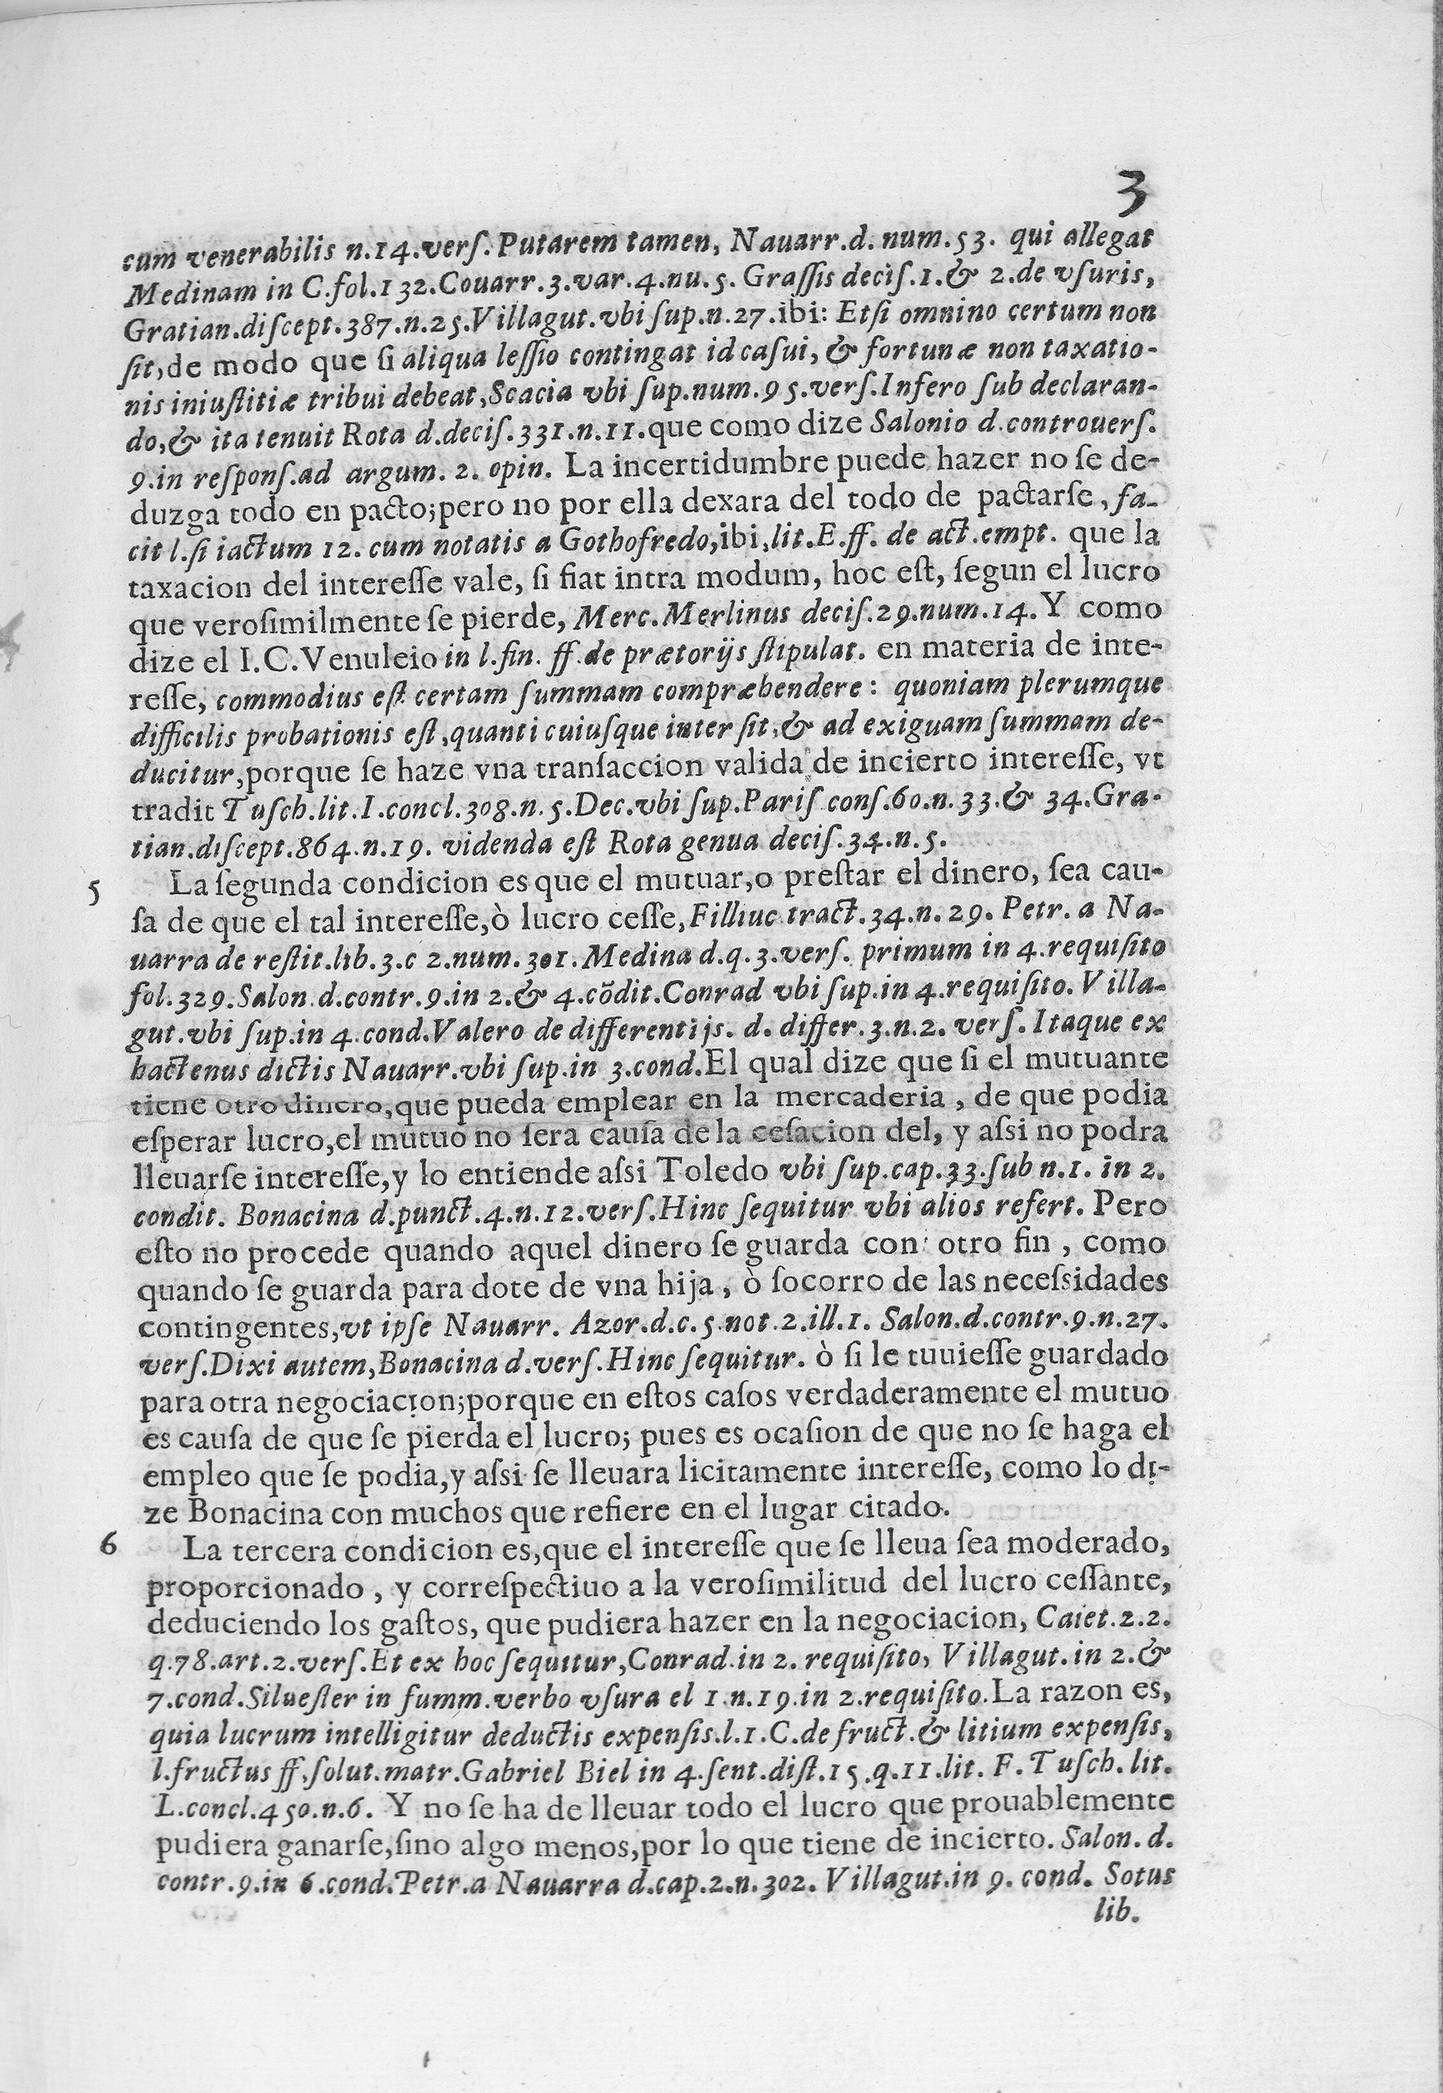 3
cum venerabilis n.14.verſ.Putarem tamen, Nauarr.d. num.53. qui allegat
Medinam in C.fol.132.Couarr.3.var.4.nu.5. Graſſis deciſ.1.& 2.de vſuris,
Gratian.diſcept.387.n.25.Villagut.vbi ſup.n.27.ibi: Etſi omnino certum non
ſit,de modo que ſi aliqua leſſio contingat id caſui, & fortunæ non taxatio-
nis iniuſtitiæ tribui debeat,Scacia vbi ſup.num.95.verſ.Infero ſub declaran-
do,& ita tenuit Rota d.deciſ.331.n.11.que como dize Salonio d.controuerſ.
9.in reſponſ.ad argum. 2. opin. La incertidumbre puede hazer no ſe de-
duzga todo en pacto;pero no por ella dexara del todo de pactarſe, fa-
cit l.ſi iactum 12. cum notatis a Gothofredo,ibi,lit.E.ff. de act.empt. que la
taxacion del intereſſe vale, ſi fiat intra modum, hoc eſt, ſegun el lucro
que veroſimilmente ſe pierde, Merc.Merlinus deciſ.29.num.14.Y como
dize el I.C.Venuleio in l.fin. ff.de prætorijs ſtipulat. en materia de inte-
reſſe, commodius eſt certam ſummam compræhendere: quoniam plerumque
difficilis probationis eſt,quanti cuiuſque inter ſit,& ad exiguam ſummam de-
ducitur,porque ſe haze vna tranſaccion valida de incierto intereſſe, vt
tradit Tuſch.lit.I.concl.308.n.5.Dec.vbi ſup.Pariſ conſ.60.n.33.& 34.Gra-
tian.diſcept.864.n.19. videnda eſt Rota genua deciſ.34.n.5.
5 La ſegunda condicion es que el mutuar,o preſtar el dinero, ſea cau-
ſa de que el tal intereſſe,ò lucro ceſſe,Filliuc tract.34.n.29. Petr. a Na-
uarra de reſtit.lib.3.c 2.num.301.Medina d.q.3.verſ. primum in 4.requiſito
fol.329.Salon.d.contr.9.in 2.& 4.cõdit.Conrad vbi ſup.in 4.requiſito. Villa-
gut.vbi ſup.in 4.cond.Valero de differentijs. d. differ.3.n.2. verſ. Itaque ex
hactenus dictis Nauarr.vbi ſup.in 3.cond.El qual dize que ſi el mutuante
tiene otro dinero,que pueda emplear en la mercaderia, de que podia
eſperar lucro,el mutuo no ſera cauſa de la ceſacion del, y aſsi no podra
lleuarſe intereſſe,y lo entiende aſsi Toledo vbi ſup.cap.33.ſub n.1. in 2.
condit. Bonacina d.punct.4.n.12.verſ.Hinc ſequitur vbi alios refert. Pero
eſto no procede quando aquel dinero ſe guarda con otro fin, como
quando ſe guarda para dote de vna hija, ò ſocorro de las neceſsidades
contingentes,vt ipſe Nauarr. Azor.d.c.5.not.2.ill.1. Salon.d.contr.9.n.27.
verſ.Dixi autem,Bonacina d.verſ.Hinc ſequitur. ò ſi le tuuieſſe guardado
para otra negociacion;porque en eſtos caſos verdaderamente el mutuo
es cauſa de que ſe pierda el lucro; pues es ocaſion de que no ſe haga el
empleo que ſe podia,y aſsi ſe lleuara licitamente intereſſe, como lo di-
ze Bonacina con muchos que refiere en el lugar citado.
6 La tercera condicion es,que el intereſſe que ſe lleua ſea moderado,
proporcionado, y correſpectiuo a la veroſimilitud del lucro ceſſante,
deduciendo los gaſtos, que pudiera hazer en la negociacion, Caiet.2.2.
q.78.art.2.verſ.Et ex hoc ſequitur,Conrad.in 2. requiſito, Villagut.in 2.&
7.cond.Silueſter in ſumm.verbo vſura el 1.n.19.in 2.requiſito.La razon es,
quia lucrum intelligitur deductis expenſis.l.1.C.de fruct.& litium expenſis,
l.fructus ff.ſolut.matr.Gabriel Biel in 4.ſent.diſt.15.q.11.lit. F.Tuſch.lit.
L.concl.450.n.6. Y no ſe ha de lleuar todo el lucro que prouablemente
pudiera ganarſe,ſino algo menos,por lo que tiene de incierto. Salon. d.
contr.9.in 6.cond.Petr.a Nauarra d.cap.2.n.302. Villagut.in 9. cond. Sotus
lib.